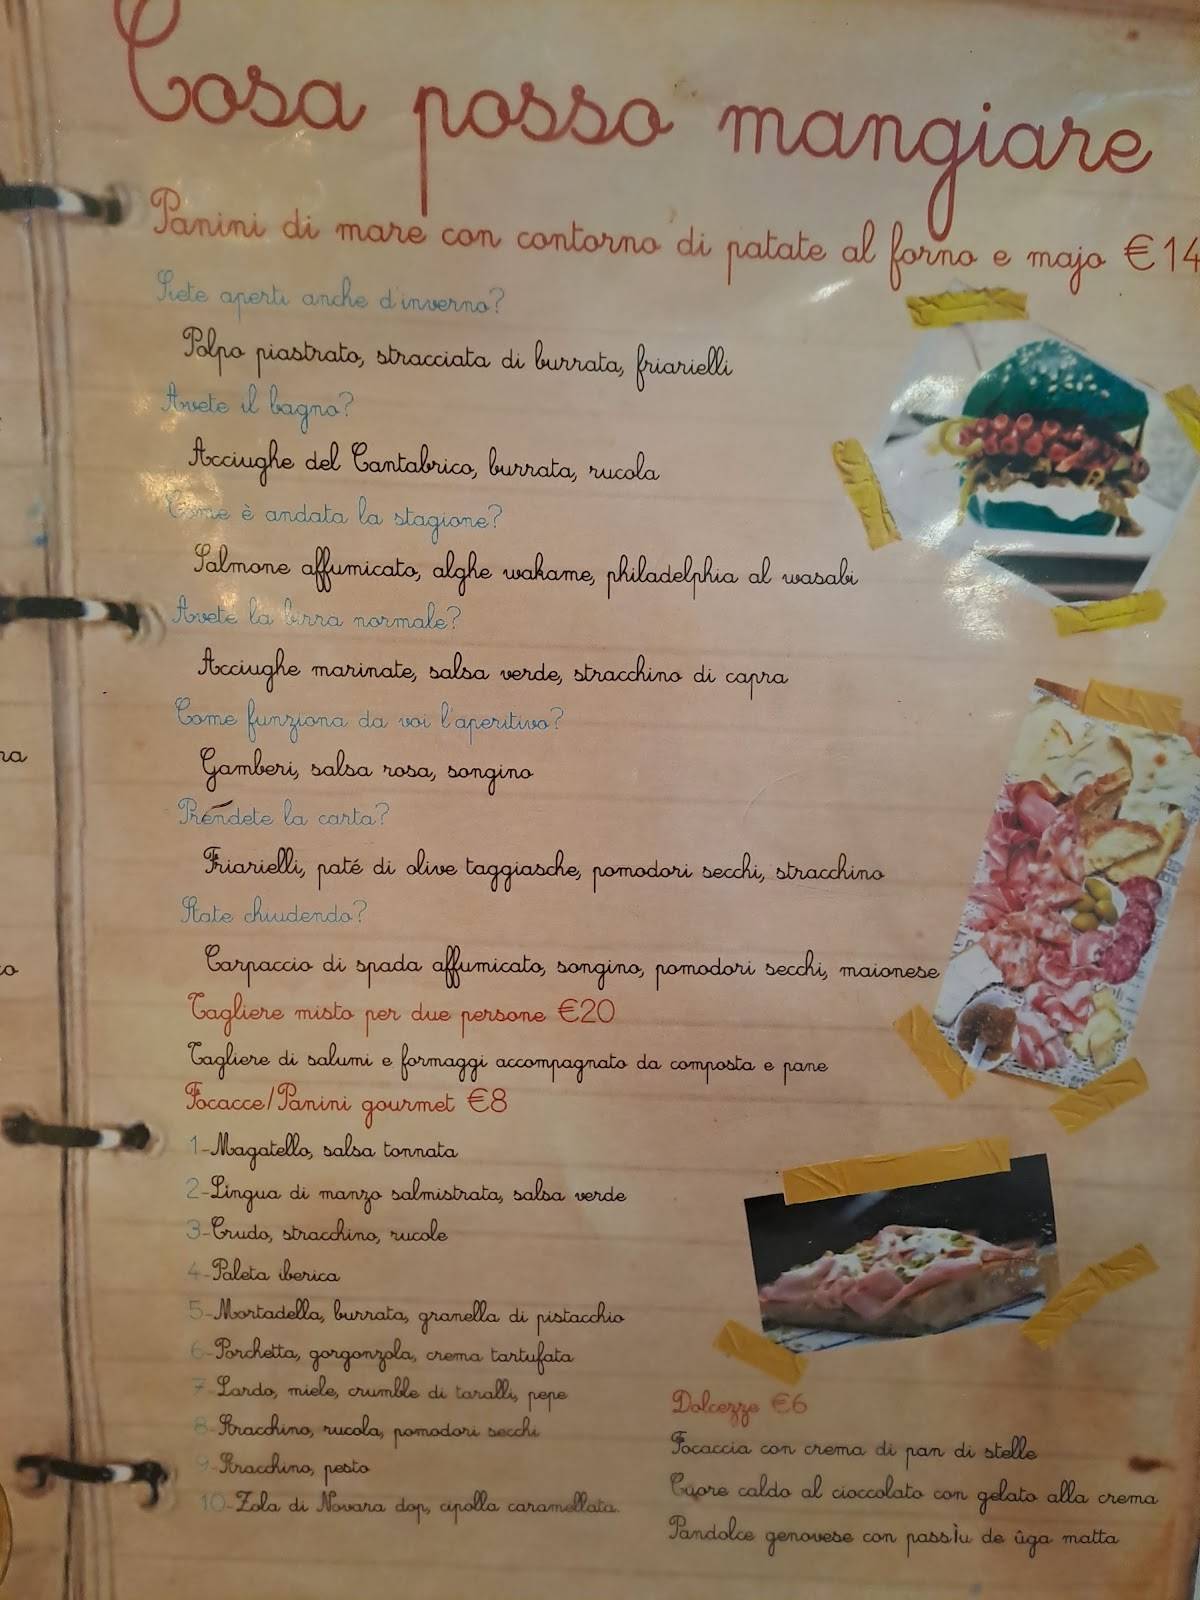 Cosa posso mangiare
Panini di mare con contorno di patate al forno e majo €14
Siete aperti anche d'inverno?
Polpo piastrato, stracciata di burrata, friarielli
Avete il bagno?
Acciughe del Cantabrico, burrata, rucola
Come è andata la stagione?
Salmone affumicato, alghe wakame, philadelphia al wasabi
Avete la birra normale?
Acciughe marinate, salsa verde, stracchino di capra
Come funziona da voi l'aperitivo?
Gamberi, salsa rosa, songino
Prendete la carta?
Friarielli, paté di olive taggiasche, pomodori secchi, stracchino
State chiudendo?
Carpaccio di spada affumicato, songino, pomodori secchi, maionese
Tagliere misto per due persone €20
Tagliere di salumi e formaggi accompagnato da composta e pane
Focacce/Panini gourmet €8
1-Magatello, salsa tonnata
2-Lingua di manzo salmistrata, salsa verde
3-Crudo, stracchino, rucole
4-Paleta iberica
5-Mortadella, burrata, granella di pistacchio
6-Porchetta, gorgonzola, crema tartufata
7-Lardo, miele, crumble di taralli, pepe
8-Stracchino, rucola, pomodori secchi
9-Stracchino, pesto
10-Zola di Novara dop, cipolla caramellata
Dolcezze €6
Focaccia con crema di pan di stelle
Cuore caldo al cioccolato con gelato alla crema
Pandolce genovese con passìu de ûga matta